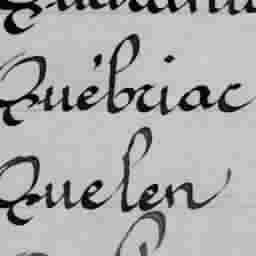 Québriac
Quelen